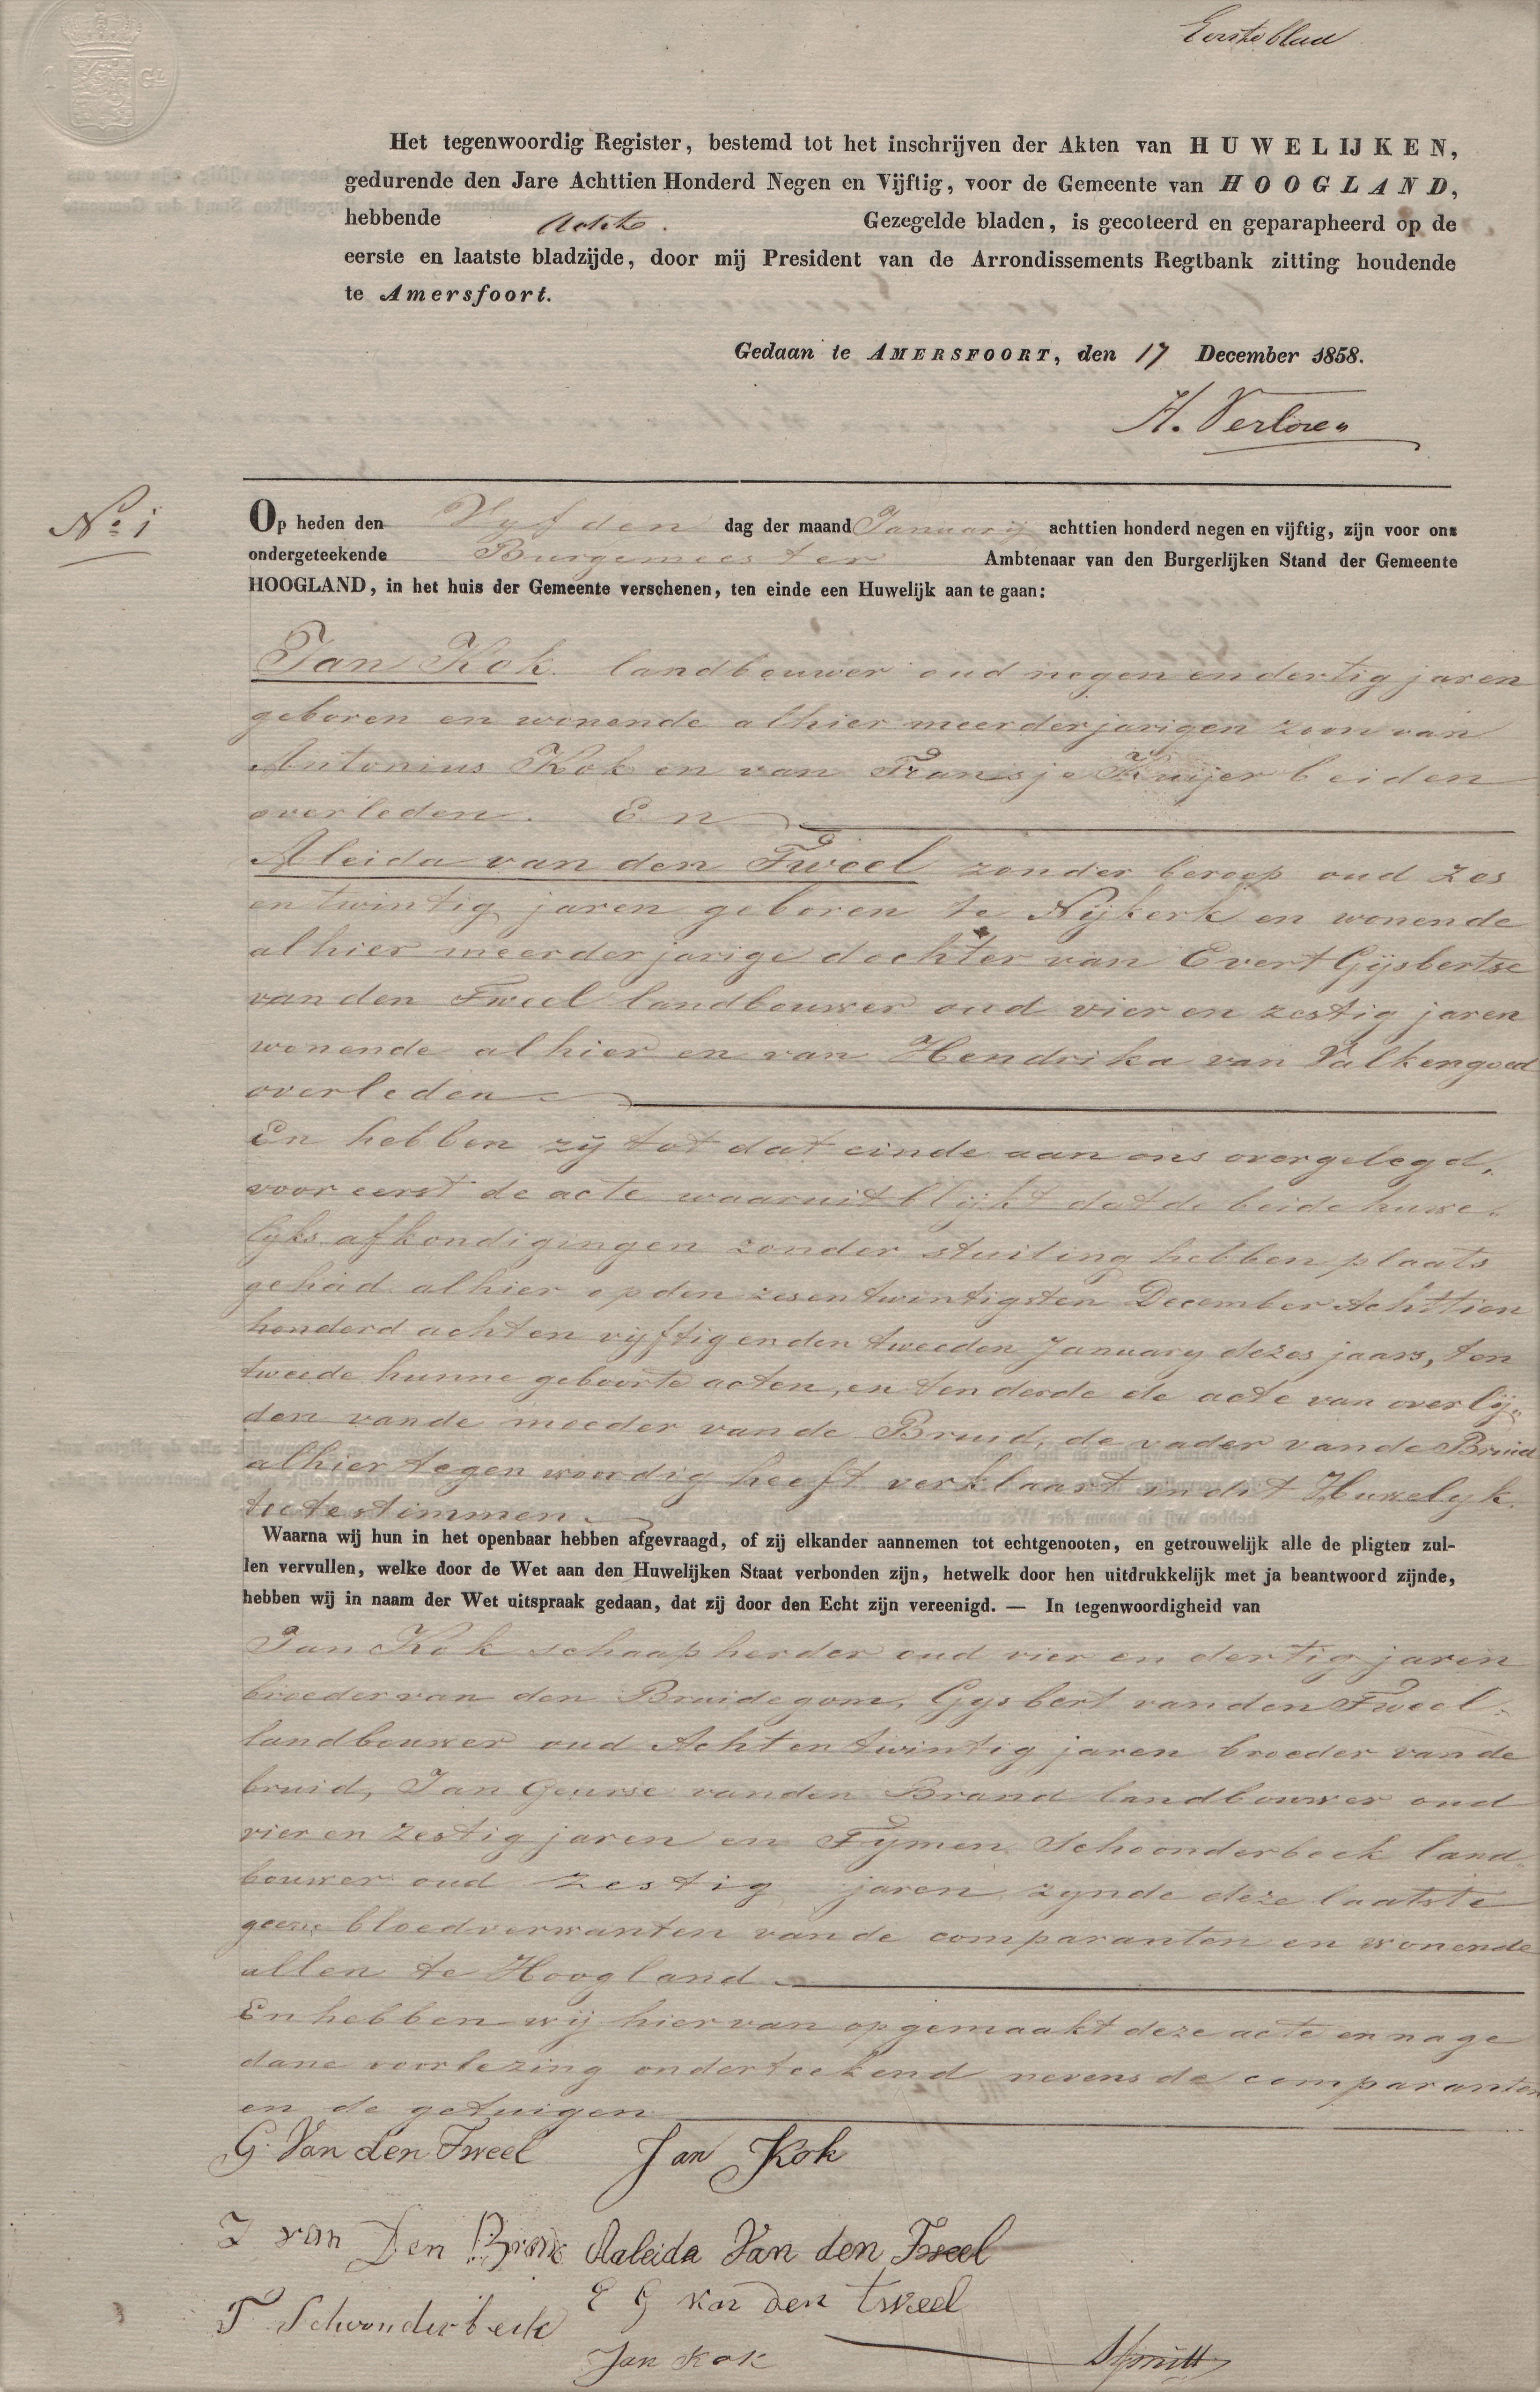 Eerste blad
1 GL
Het tegenwoordig Register, bestemd tot het inschrijven der Akten van HUWELIJKEN,
gedurende den Jare Achttien Honderd Negen en Vijftig, voor de Gemeente van HOOGLAND,
hebbende Acht. Gezegelde bladen, is gecoteerd en geparapheerd op de
eerste en laatste bladzijde, door mij President van de Arrondissements Regtbank zitting houdende
te Amersfoort.
Gedaan te AMERSFOORT, den 17 December 1858.
H. Verloren
No. 1
Op heden den Vyfden dag der maand January achttien honderd negen en vijftig, zijn voor ons
ondergeteekende Burgemeester Ambtenaar van den Burgerlijken Stand der Gemeente
HOOGLAND, in het huis der Gemeente verschenen, ten einde een Huwelijk aan te gaan:
Jan Kok. landbouwer oud negen en dertig jaren
geboren en wonende alhier meerderjarigen zoon van
Antonius Kok en van Fransje Kuijer beiden
overleden. En
Aleida van den Tweel zonder beroep oud zes
en twintig jaren geboren te Nijkerk en wonende
alhier meerderjarige dochter van Evert Gijsbertse
van den Tweel landbouwer oud vier en zestig jaren
wonende alhier en van Hendrika van Valkengoed
overleden
En hebben zij tot dat einde aan ons overgelegd,
voor eerst de acte waaruit blijkt dat de beide huwe-
lyks afkondigingen zonder stuiting hebben plaats
gehad alhier op den zesentwintigsten December Achttien
honderd acht en vyftig en den tweeden January dezes jaars, ten
tweede hunne geboorte acten, en ten derde de acte van overlij-
den van de moeder van de Bruid, de vader van de Bruid
alhier tegenwoordig heeft verklaart in dit Huwelyk.
toetestemmen.
Waarna wij hun in het openbaar hebben afgevraagd, of zij elkander aannemen tot echtgenooten, en getrouwelijk alle de pligten zul-
len vervullen, welke door de Wet aan den Huwelijken Staat verbonden zijn, hetwelk door hen uitdrukkelijk met ja beantwoord zijnde,
hebben wij in naam der Wet uitspraak gedaan, dat zij door den Echt zijn vereenigd. — In tegenwoordigheid van
Jan Kok schaapherder oud vier en dertig jaren
broeder van den Bruidegom, Gysbert van den Tweel
landbouwer oud Acht en twintig jaren broeder van de
bruid, Jan Geurse van den Brand landbouwer oud
vier en zestig jaren en Tymen Schoonderbeek land-
bouwer oud zestig jaren zynde deze laatste
geene bloedverwanten van de comparanten en wonende
allen te Hoogland
En hebben wij hier van opgemaakt deze acte en na ge
dane voorlezing onderteekend nevens de comparanten
en de getuigen
G. Van den Tweel Jan Kok
J van Den Bran Aaleida Van den Tweel
E G van den tweel
T. Schoonderbeek
Jan Kok